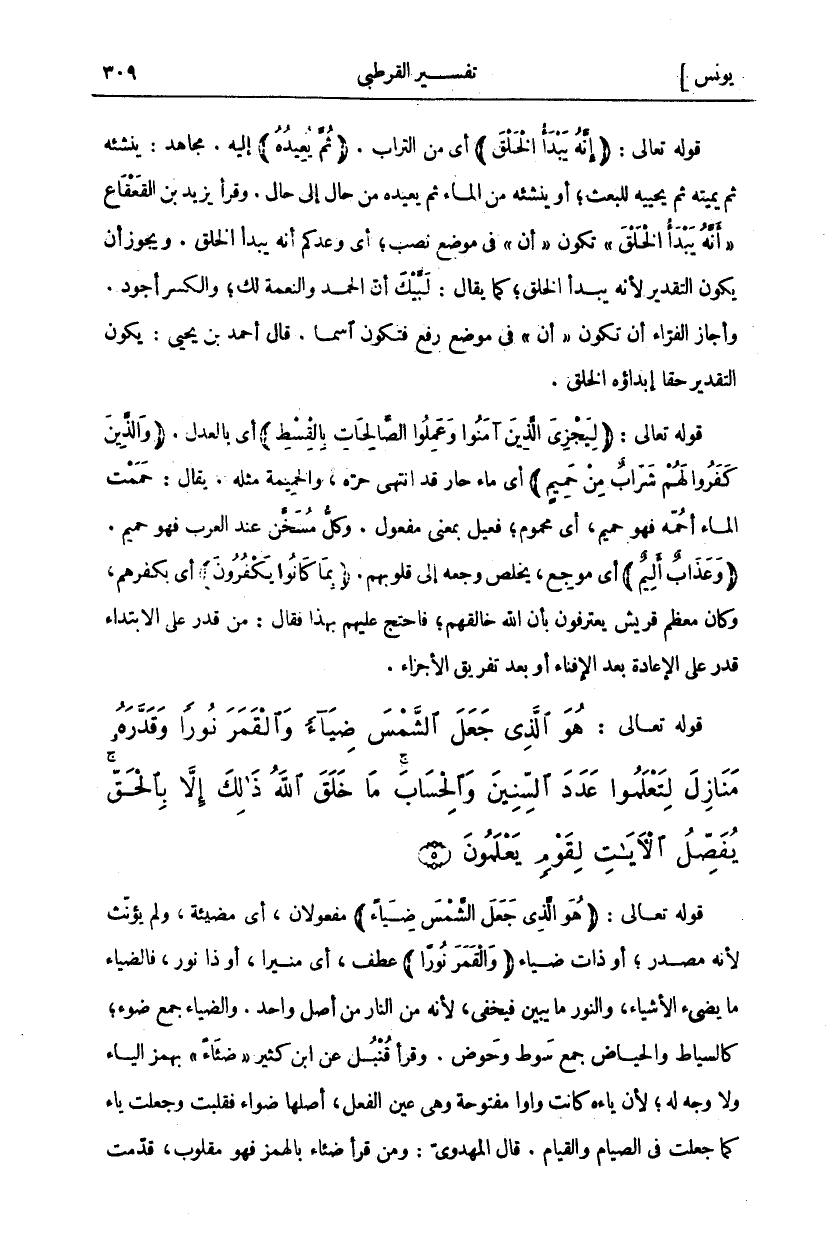 يونس ] تفسير القرطبى ٣٠٩
قوله تعالى : ﴿ إِنَّهُ يَبْدَأُ الْخَلْقَ ﴾ أى من التراب . ﴿ ثُمَّ يُعِيدُهُ ﴾ إليه . مجاهد : ينشئه
ثم يميته ثم يحييه للبعث؛ أو ينشئه من الماء ثم يعيده من حال إلى حال . وقرأ يزيد بن القَعْقاع
« أَنَّهُ يَبْدَأُ الْخَلْقَ » تكون « أن » فى موضع نصب؛ أى وعدكم أنه يبدأ الخلق . ويجوز أن
يكون التقدير لأنه يبدأ الخلق؛ كما يقال : لَبَّيْكَ أنّ الحمد والنعمة لك؛ والكسر أجود .
وأجاز الفرّاء أن تكون « أن » فى موضع رفع فتكون ٱسما . قال أحمد بن يحيى : يكون
التقدير حقا إبداؤه الخلق .
قوله تعالى : ﴿ لِيَجْزِىَ الَّذِينَ آمَنُوا وَعَمِلُوا الصَّالِحَاتِ بِالْقِسْطِ ﴾ أى بالعدل . ﴿ وَالَّذِينَ
كَفَرُوا لَهُمْ شَرَابٌ مِنْ حَمِيمٍ ﴾ أى ماء حار قد انتهى حرّه ، والحميمة مثله . يقال : حَمَمْت
الماء أَحُمّه فهو حميم، أى محموم؛ فعيل بمعنى مفعول . وكلُّ مُسَخَّن عند العرب فهو حميم .
﴿ وَعَذَابٌ أَلِيمٌ ﴾ أى موجع، يخلص وجعه إلى قلوبهم. ﴿ بِمَا كَانُوا يَكْفُرُونَ ﴾ أى بكفرهم،
وكان معظم قريش يعترفون بأن الله خالقهم؛ فاحتج عليهم بهذا فقال : من قدر على الابتداء
قدر على الإعادة بعد الإفناء أو بعد تفريق الأجزاء .
قوله تعالى : هُوَ ٱلَّذِى جَعَلَ ٱلشَّمْسَ ضِيَآءً وَٱلْقَمَرَ نُورًا وَقَدَّرَهُۥ
مَنَازِلَ لِتَعْلَمُوا عَدَدَ ٱلسِّنِينَ وَٱلْحِسَابَ ۚ مَا خَلَقَ ٱللَّهُ ذَٰلِكَ إِلَّا بِٱلْحَقِّ ۚ
يُفَصِّلُ ٱلْآيَـٰتِ لِقَوْمٍ يَعْلَمُونَ ۝٥
قوله تعالى : ﴿ هُوَ الَّذِى جَعَلَ الشَّمْسَ ضِيَاءً ﴾ مفعولان ، أى مضيئة ، ولم يؤنّث
لأنه مصدر ؛ أو ذات ضياء ﴿ وَالْقَمَرَ نُورًا ﴾ عطف ، أى منيرا ، أو ذا نور ، فالضياء
ما يضىء الأشياء، والنور ما يبين فيخفى، لأنه من النار من أصل واحد . والضياء جمع ضوء؛
كالسياط والحياض جمع سَوط وحَوض . وقرأ قُنْبُل عن ابن كثير « ضئَاءً » بهمز الياء
ولا وجه له ؛ لأن ياءه كانت واوا مفتوحة وهى عين الفعل، أصلها ضواء فقلبت وجعلت ياء
كما جعلت فى الصيام والقيام . قال المهدوىّ : ومن قرأ ضئاء بالهمز فهو مقلوب، قدّمت